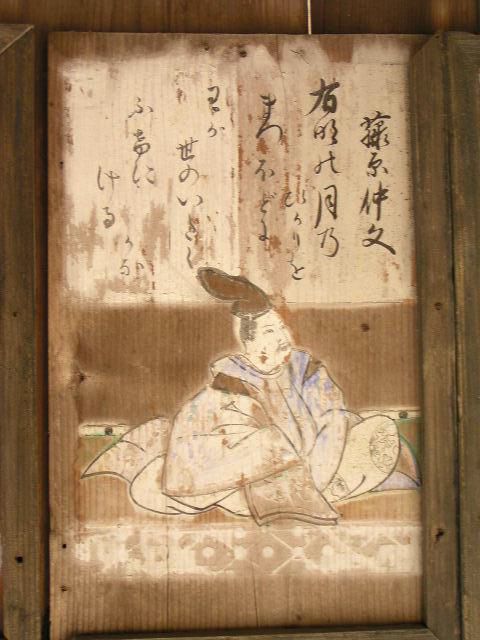 藤原仲文
有明の月乃
ひかりを
まつほどに
わが
世のいたく
ふけに
ける
かな